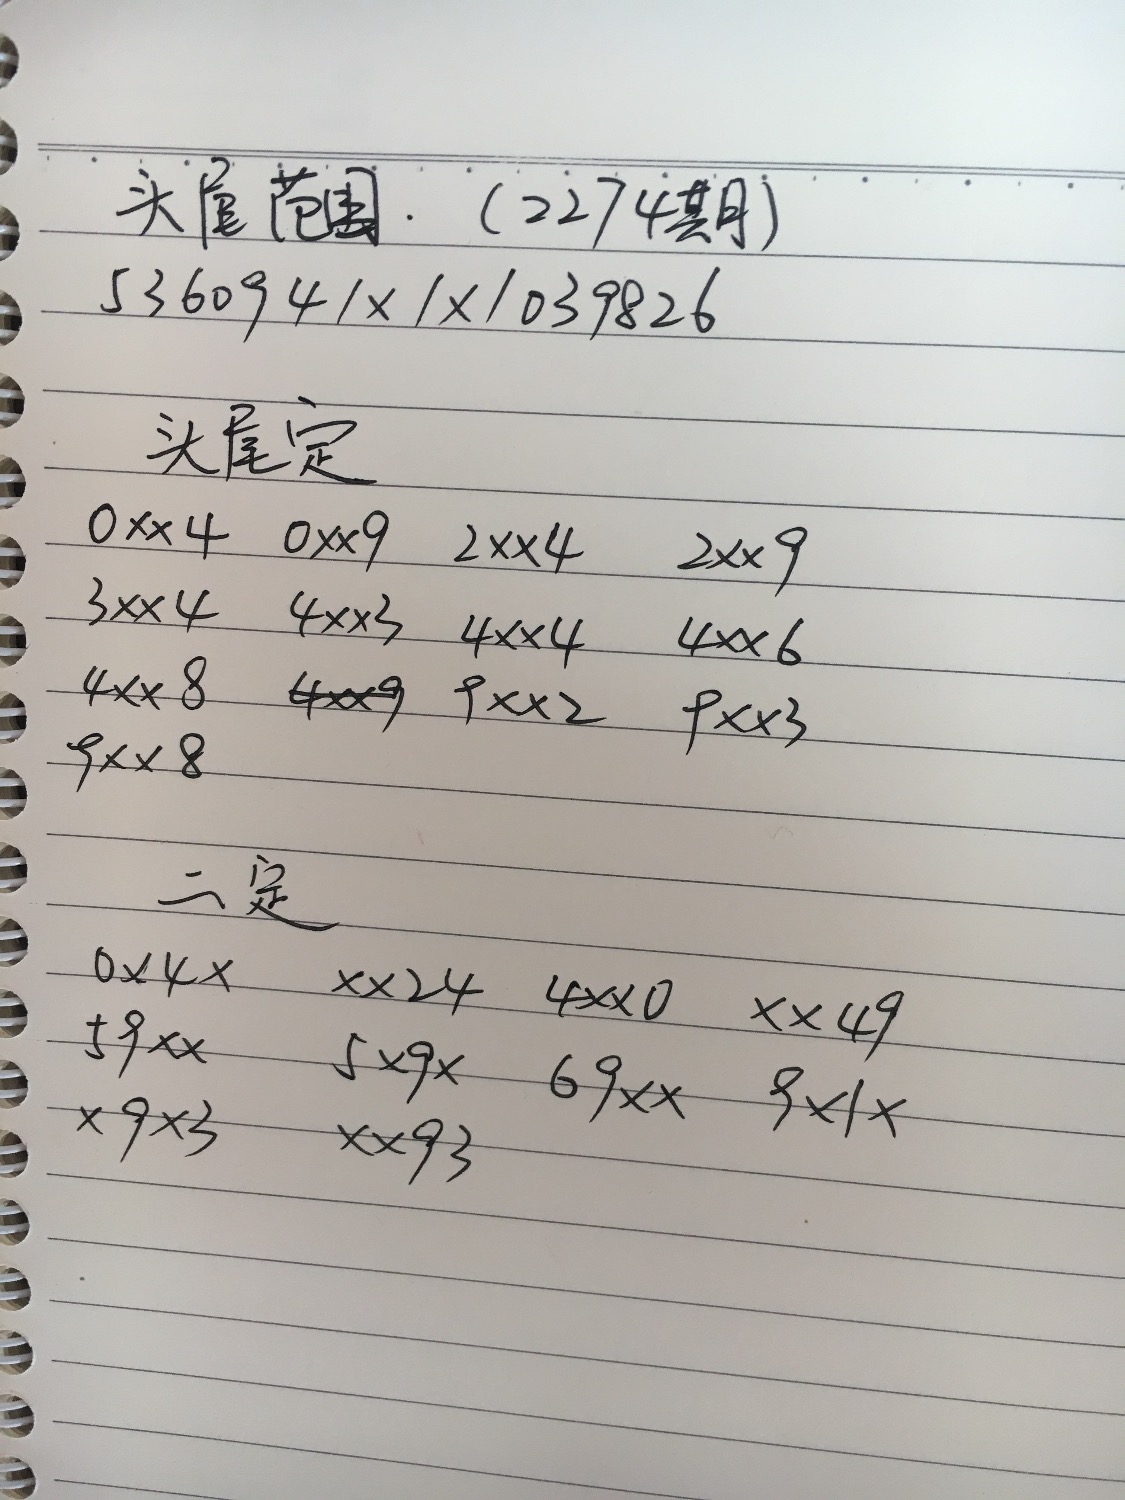 头尾范围.(2274期)
5360941x1x1039826
头尾定
0xx4 0xx9 2xx4 2xx9
3xx4 4xx3 4xx4 4xx6
4xx8 4xx9 9xx2 9xx3
9xx8
二定
0x4x xx24 4xx0 xx49
59xx 5x9x 69xx 9x1x
x9x3 xx93